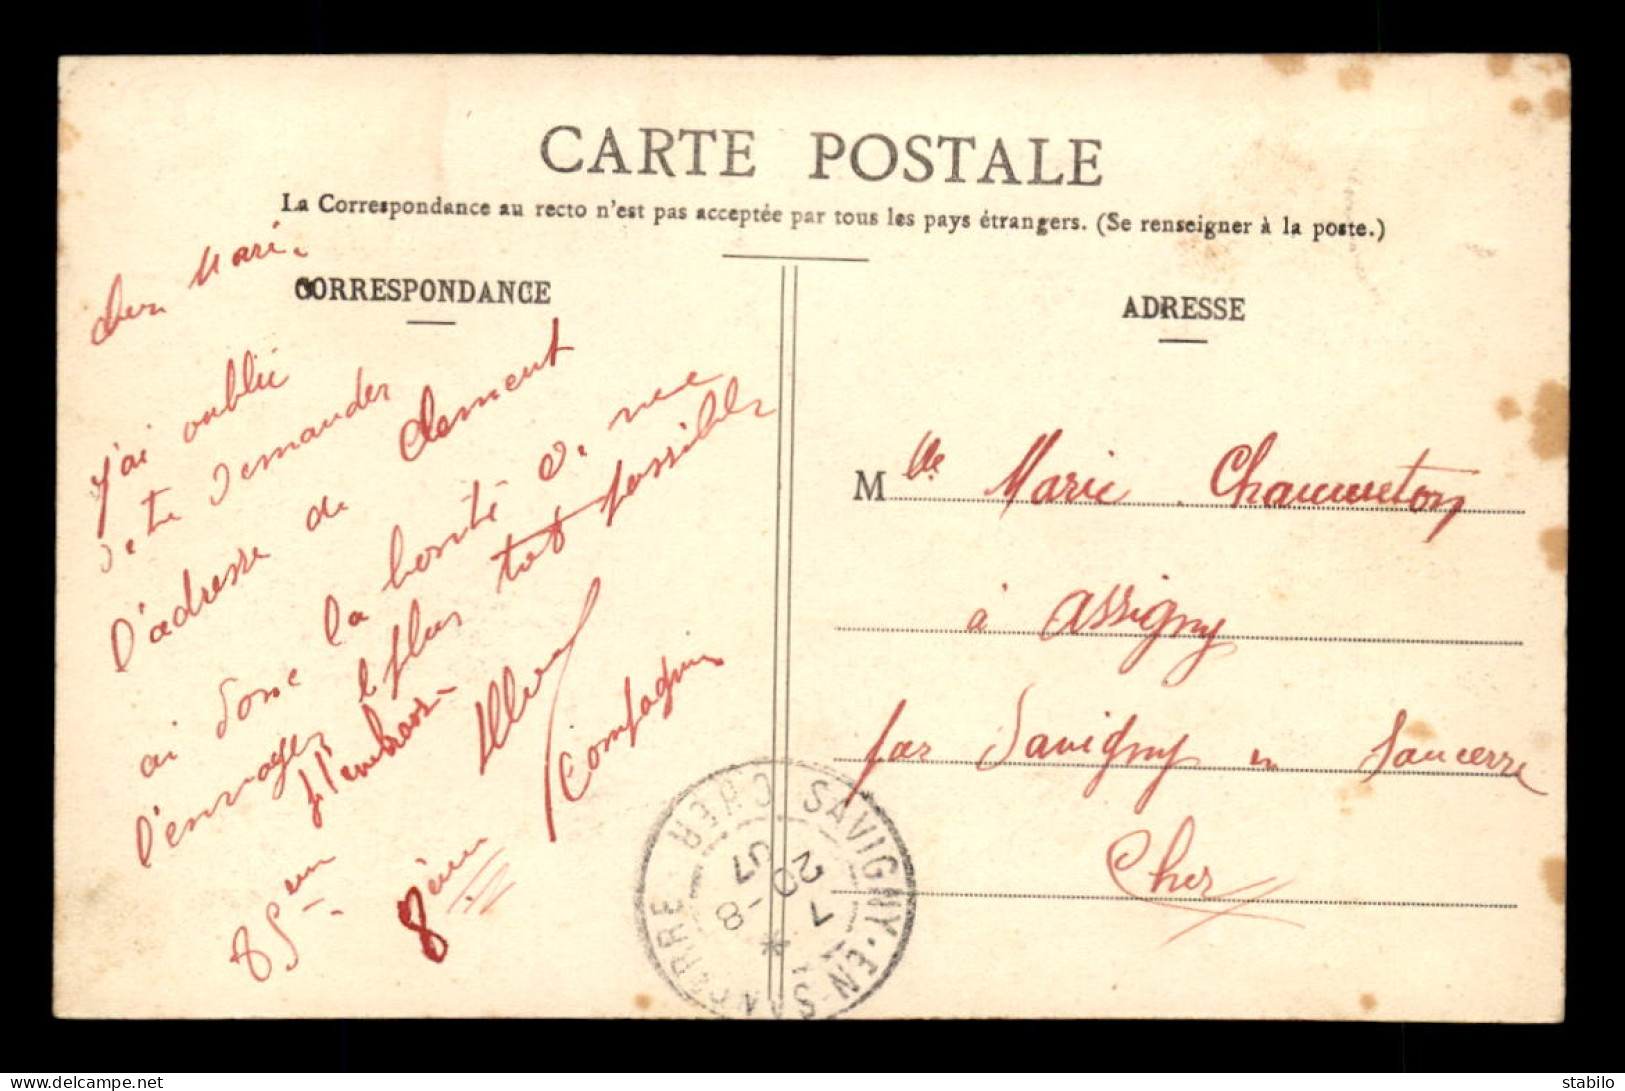 CARTE POSTALE
La Correspondance au recto n'est pas acceptée par tous les pays étrangers. (Se renseigner à la poste.)
CORRESPONDANCE
cher Marie
j'ai oublié
de te demander
l'adresse de clement
ai donc la bonté de me
l'envoyer le plus tot possible
j t'embrasse
85em 8ième Compagnie
ADRESSE
Mlle Marie Chaumeton
à Assigny
par Savigny en Sancerre
Cher
SAVIGNY-EN-SANCERRE CHER
7 -8
20
07
stabilo